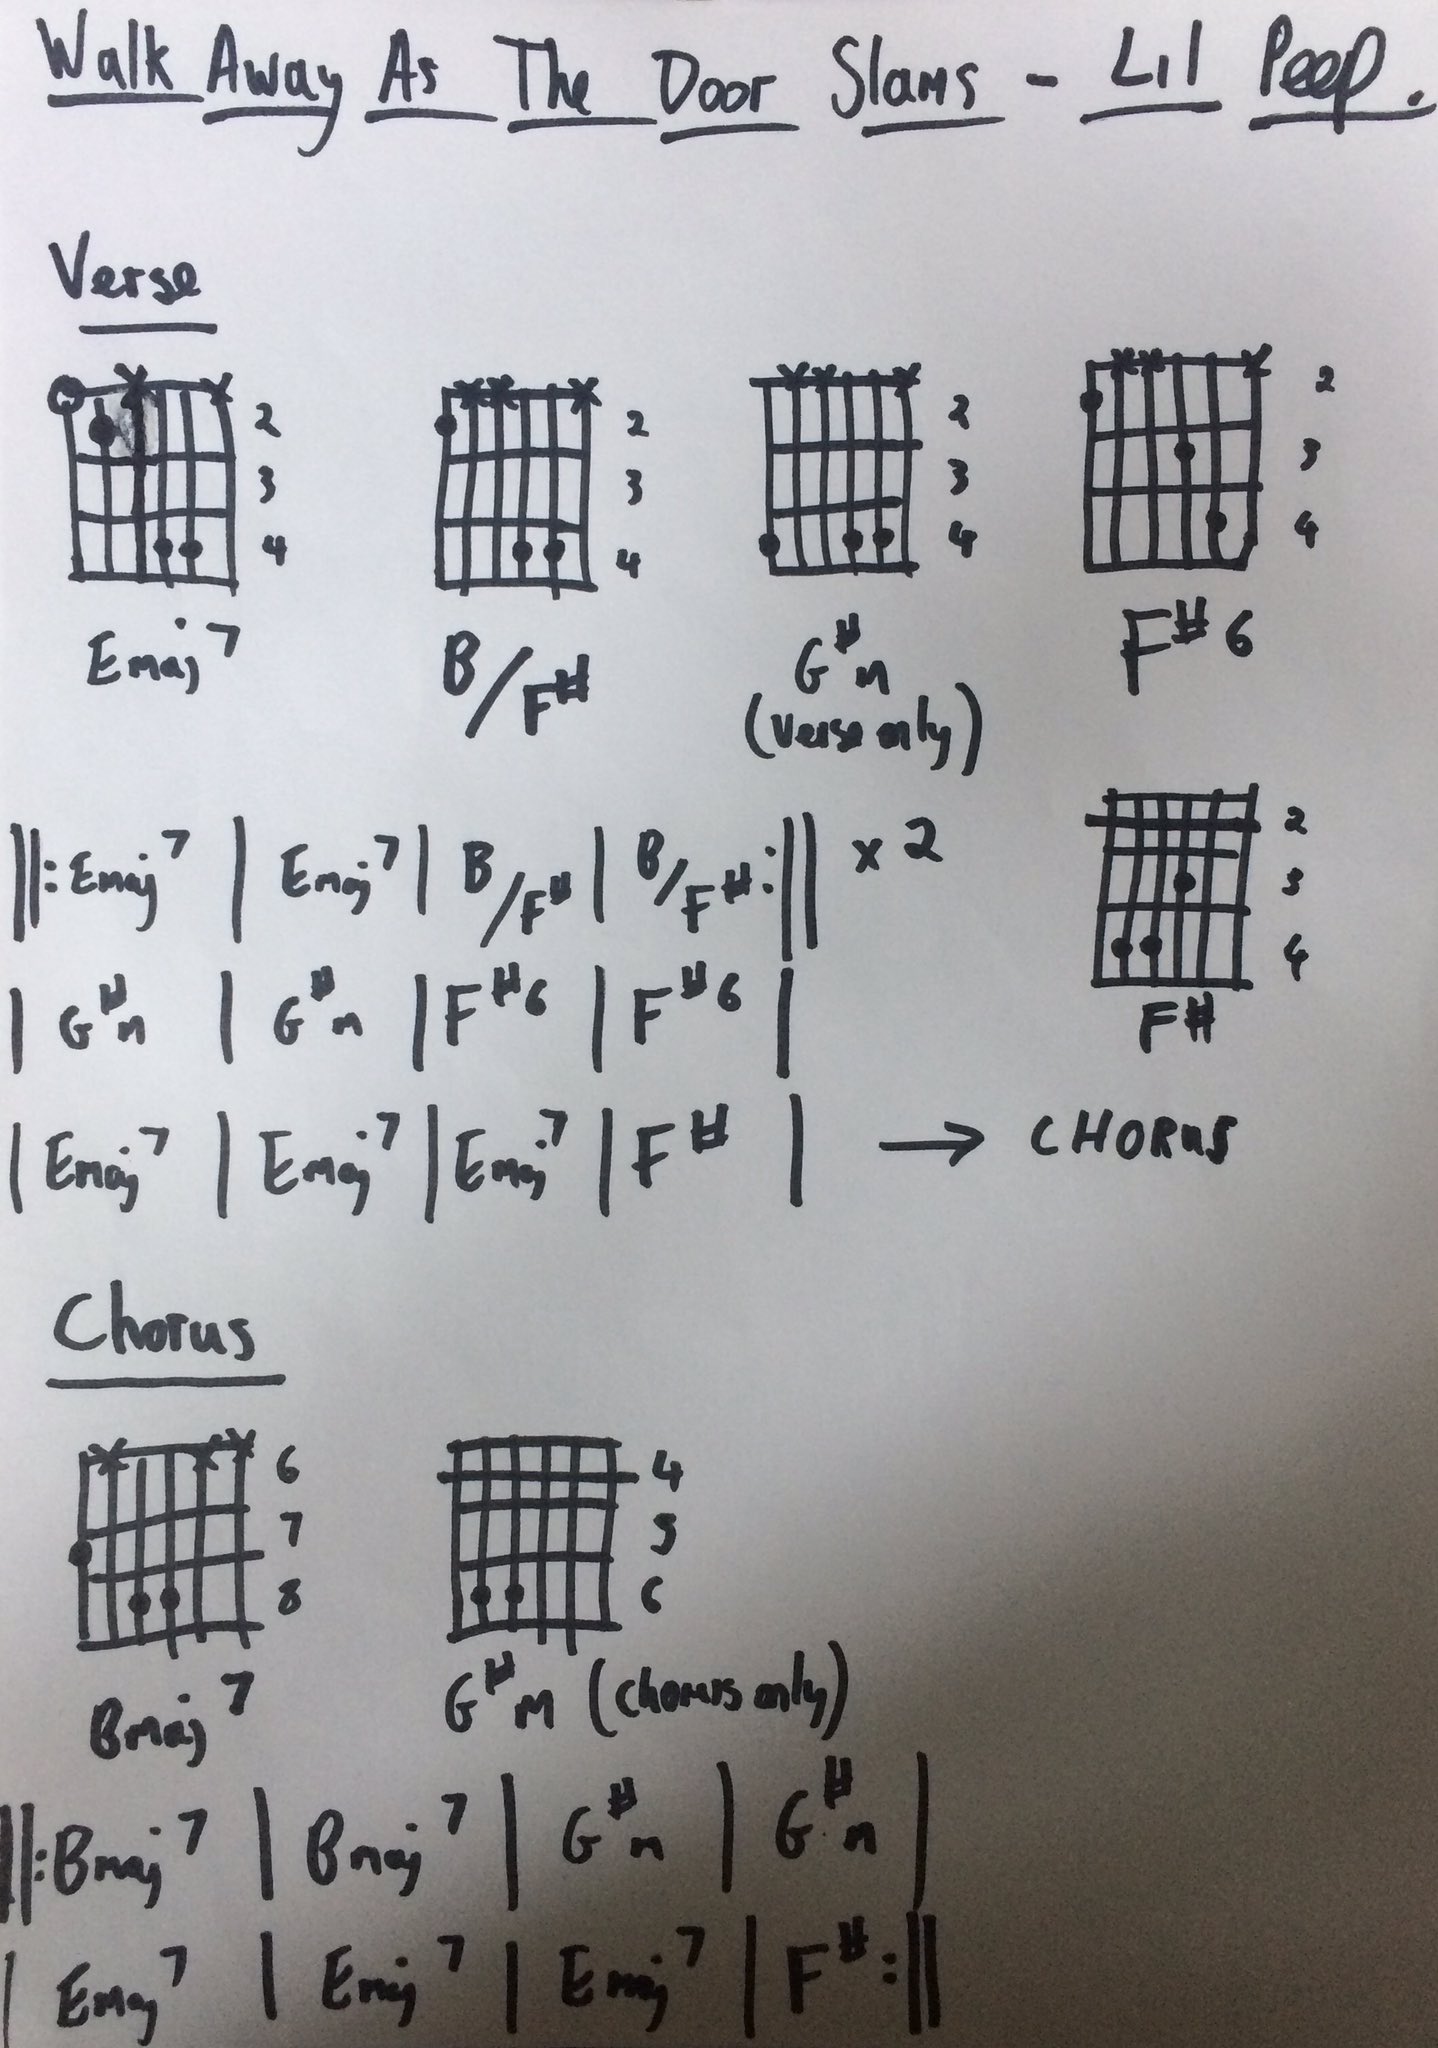 Walk Away As The Door Slams - Lil Peep.
Verse
x x 2 3 4
xx x 2 3 4
xx x 2 3 4
xx x 2 3 4
Emaj7 B/F# G#m F#6
(verse only)
2 3 4
F#
||: Emaj7 | Emaj7 | B/F# | B/F# :|| x 2
| G#m | G#m | F#6 | F#6 |
| Emaj7 | Emaj7 | Emaj7 | F# | → CHORUS
Chorus
x xx 6 7 8
4 5 6
Bmaj7 G#m (chorus only)
||: Bmaj7 | Bmaj7 | G#m | G#m |
| Emaj7 | Emaj7 | Emaj7 | F# :||